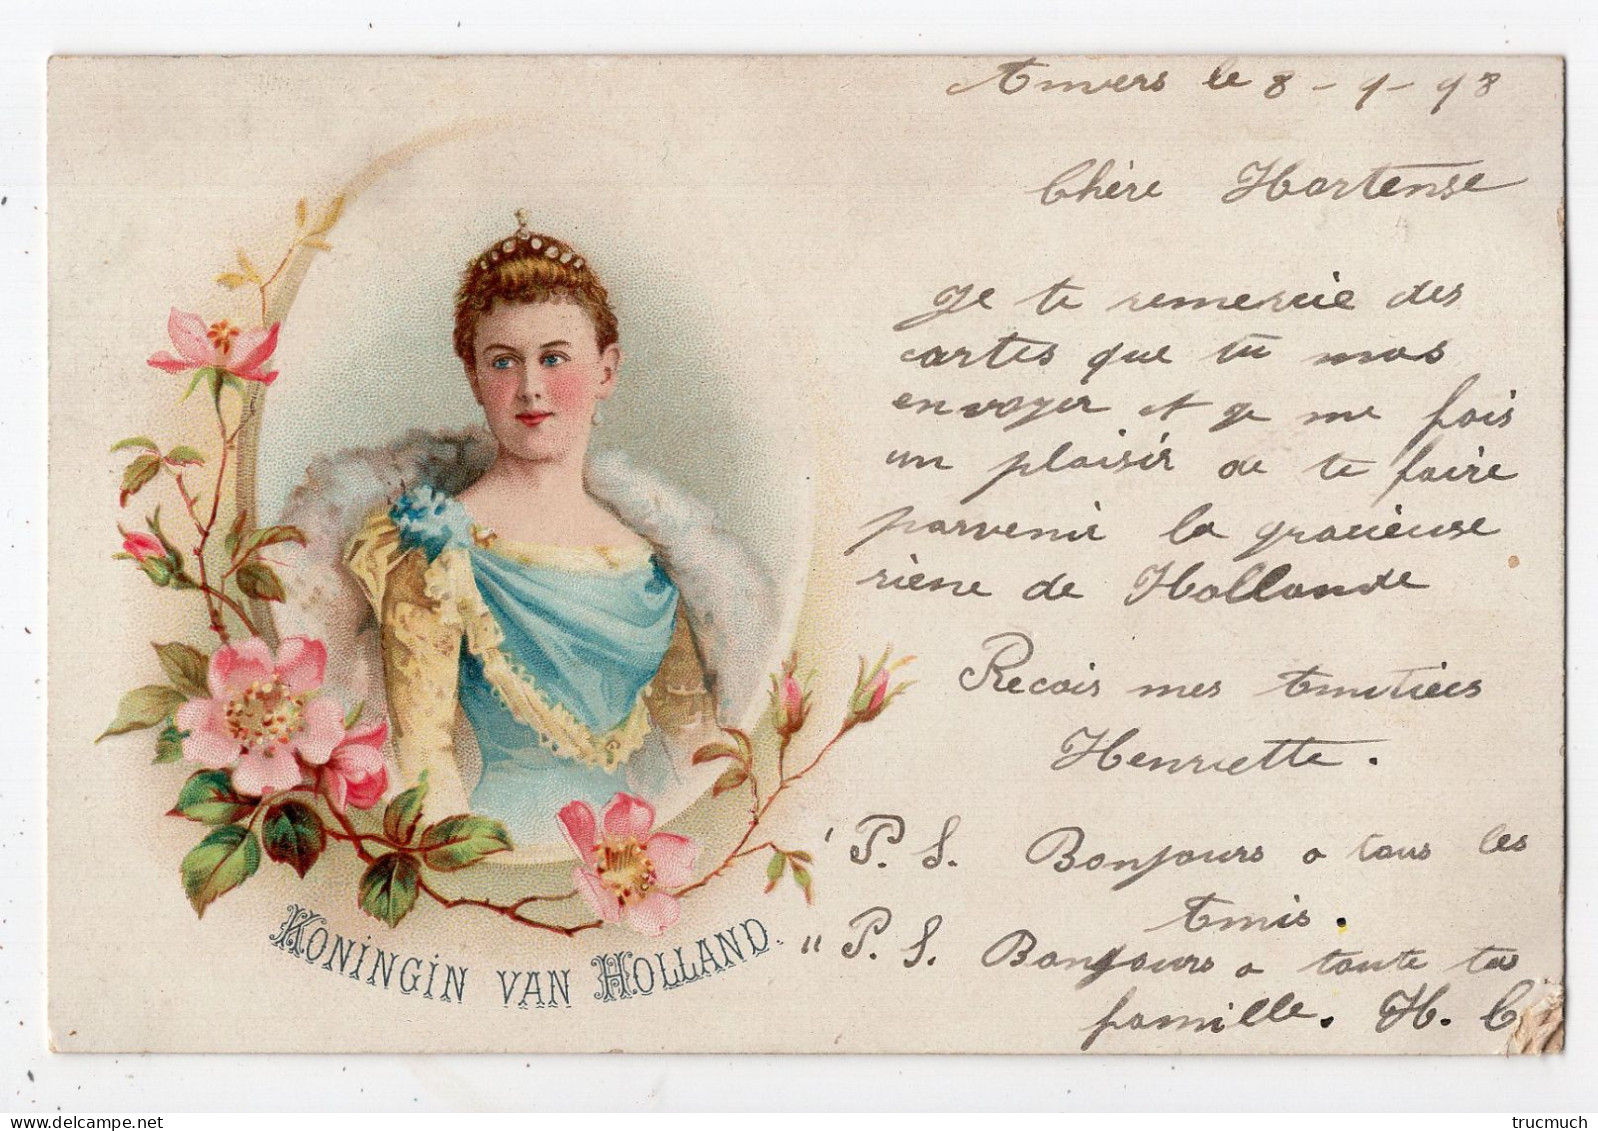 Anvers le 8 - 9 - 98
Chère Hortense
Je te remercie des
cartes que tu mas
envoyer et je me fois
un plaisir de te faire
parvenir la gracieuse
riene de Hollande
Recois mes Amitiees
Henriette.
' P. S. Bonjours a tous les
Amis.
" P. S. Bonjours a toute ta
famille. H. C
KONINGIN VAN HOLLAND.
trucmuch